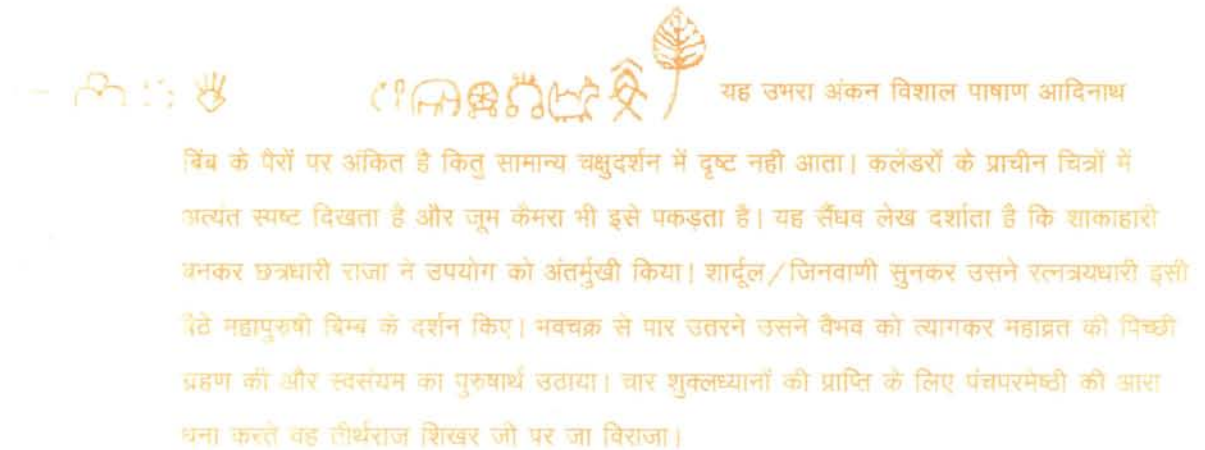 यह उभरा अंकन विशाल पाषाण आदिनाथ
बिंब के पैरों पर अंकित है किंतु सामान्य चक्षुदर्शन में दृष्ट नही आता। कलेंडरों के प्राचीन चित्रों में
अत्यंत स्पष्ट दिखता है और जूम कैमरा भी इसे पकड़ता है। यह सैंधव लेख दर्शाता है कि शाकाहारी
बनकर छत्रधारी राजा ने उपयोग को अंतर्मुखी किया। शार्दूल/जिनवाणी सुनकर उसने रत्नत्रयधारी इसी
बैठे महापुरुषी बिम्ब के दर्शन किए। भवचक्र से पार उतरने उसने वैभव को त्यागकर महाव्रत की पिच्छी
ग्रहण की और स्वसंयम का पुरुषार्थ उठाया। चार शुक्लध्यानों की प्राप्ति के लिए पंचपरमेष्ठी की आरा
धना करते वह तीर्थराज शिखर जी पर जा विराजा।